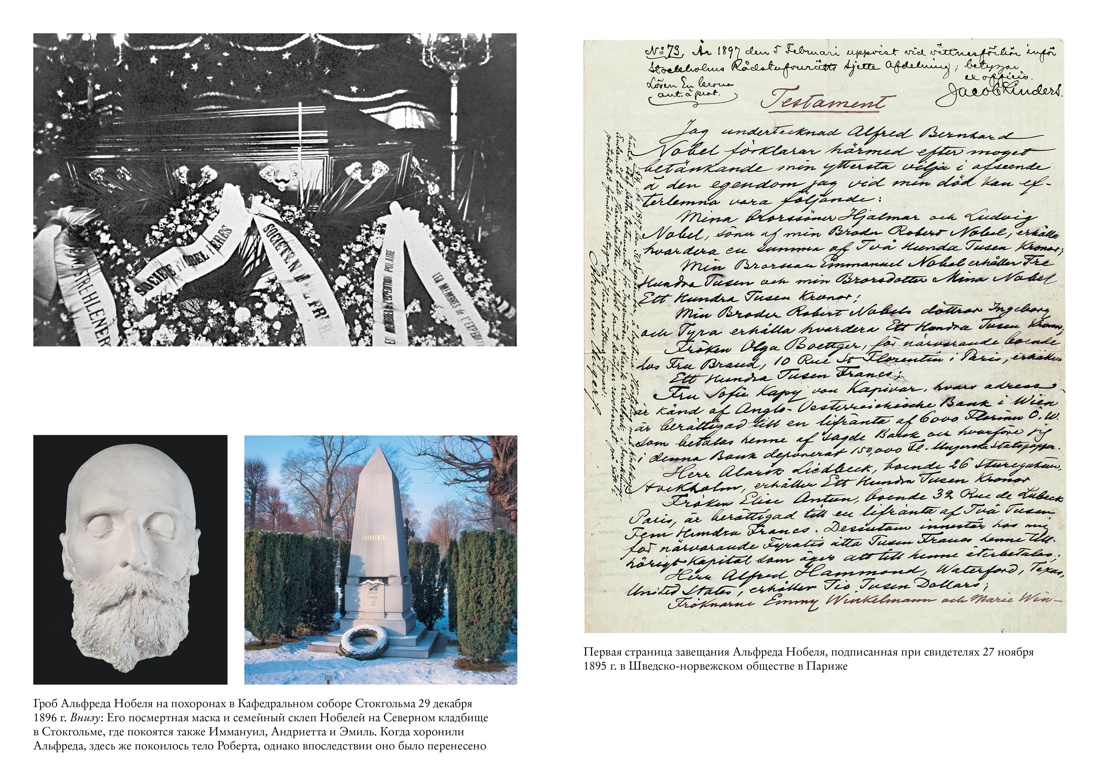 EHLENER
SOCIETE
NOBEL
Гроб Альфреда Нобеля на похоронах в Кафедральном соборе Стокгольма 29 декабря
1896 г. Внизу: Его посмертная маска и семейный склеп Нобелей на Северном кладбище
в Стокгольме, где покоятся также Иммануил, Андриетта и Эмиль. Когда хоронили
Альфреда, здесь же покоилось тело Роберта, однако впоследствии оно было перенесено
No 73. År 1897 den 5 Februari uppvist vid vittnesförhör inför
Stockholms Rådstufvurätts sjette Afdelning; betygar
ex officio.
Testament
Jag undertecknad Alfred Bernhard
Nobel förklarar härmed efter moget
betänkande min yttersta vilja i afseende
å den egendom jag vid min död kan ef-
terlemna vara följande:
Mina Brorsöner Hjalmar och Ludvig
Nobel, söner af min Broder Robert Nobel, erhålla
hvardera en summa af Två Hundra Tusen Kronor;
Min Brorson Emmanuel Nobel erhåller Tre
Hundra Tusen och min Brorsdotter Mina Nobel
Ett Hundra Tusen Kronor;
Min Broder Robert Nobels döttrar Ingeborg
och Tyra erhålla hvardera Ett Hundra Tusen Kronor;
Fröken Olga Boettger, för närvarande boende
hos Fru Brand, 10 Rue St Florentin i Paris, erhåller
Ett Hundra Tusen Francs;
Fru Sofie Kapy von Kapivar, hvars adress
är känd af Anglo-Oesterreichische Bank i Wien
är berättigad till en lifränta af 6000 Florins Ö.W.
som betalas henne af sagde Bank och hvarför jag
i denna Bank deponerat 150,000 Fl. i Ungerska Statspapper.
Herr Alarik Liedbeck, boende 26 Sturegatan,
Stockholm, erhåller Ett Hundra Tusen Kronor
Fröken Elise Antun, boende 32 Rue de Lubeck
Paris, är berättigad till en lifränta af Två Tusen
Fem Hundra Francs. Dessutom innestår hos mig
för närvarande Fyratio åtta Tusen Francs henne till-
hörigt Kapital som äger att till henne återbetalas;
Herr Alfred Hammond, Waterford, Texas,
United States, erhåller Tio Tusen Dollars;
Fröknarne Emmy Winkelmann och Marie Win-
Первая страница завещания Альфреда Нобеля, подписанная при свидетелях 27 ноября
1895 г. в Шведско-норвежском обществе в Париже